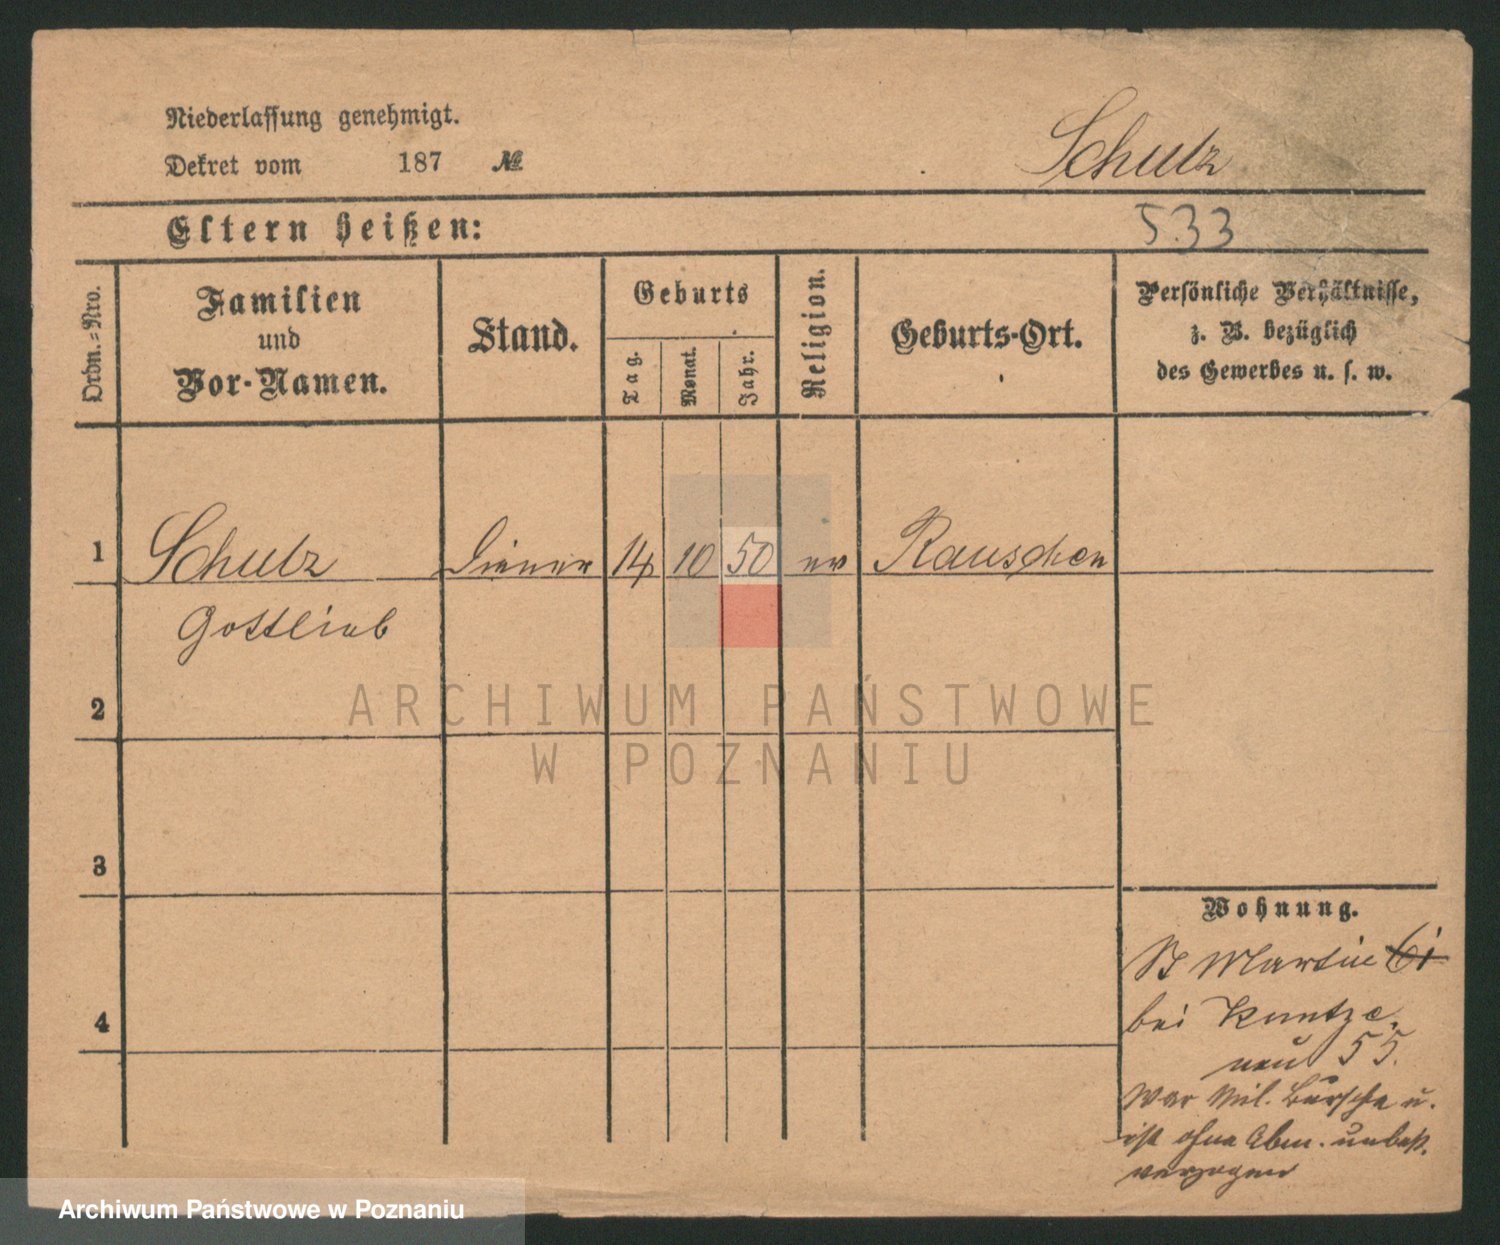 Niederlassung genehmigt.
Dekret vom 187 №
Schulz
Eltern heißen:
533
Ordn.-Nro.
Familien
und
Vor-Namen.
Stand.
Geburts
Tag.
Monat.
Jahr.
Religion.
Geburts-Ort.
Persönliche Verhältnisse,
z. B. bezüglich
des Gewerbes u. s. w.
1 Schulz Diener 14 10 50 ev Rauschen
Gottlieb
2
ARCHIWUM PAŃSTWOWE
W POZNANIU
3
Wohnung.
St Martin 61
bei Kuntze.
4
neu 55.
War Mil. Bursche u.
ist ohne Abm. unbek.
verzogen
Archiwum Państwowe w Poznaniu